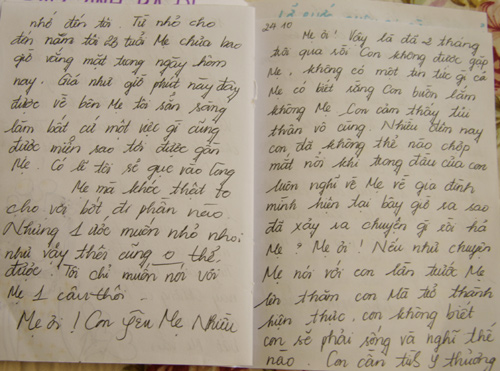 nhỏ đến tôi. Từ nhỏ cho
đến năm tôi 23 tuổi Mẹ chưa bao
giờ vắng mặt trong ngày hôm
nay. Giá như giờ phút này đây
được về bên Mẹ tôi sẵn sàng
làm bất cứ một việc gì cũng
được miễn sao tôi được gần
Mẹ. Có lẽ tôi sẽ gục vào lòng
Mẹ mà khóc thật to
cho vơi bớt đi phần nào
Nhưng 1 ước muốn nhỏ nhoi
như vậy thôi cũng o thể
được! Tôi chỉ muốn nói với
Mẹ 1 câu thôi.
Mẹ ơi! Con yêu Mẹ Nhiều
24.10
Mẹ ơi! Vậy là đã 2 tháng
trôi qua rồi con không được gặp
Mẹ, không có một tin tức gì cả
Mẹ có biết rằng con buồn lắm
không Mẹ. Con cảm thấy tủi
thân vô cùng. Nhiều đêm nay
con đã không thể nào chợp
mắt nổi khi trong đầu của con
luôn nghĩ về Mẹ về gia đình
mình hiện tại bây giờ ra sao
đã xảy ra chuyện gì rồi hả
Mẹ? Mẹ ơi! Nếu như chuyện
Mẹ nói với con lần trước Mẹ
lên thăm con Mà trở thành
hiện thực. con không biết
con sẽ phải sống và nghĩ thế
nào. Con cần ý thưởng